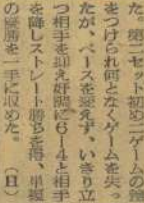 た。継二セット初め二ゲームの差
をつけられ何となくゲームを失っ
たが、ペースを変えず、いきり立
つ相手を迎え好調に6―4と相手
を降しストレート勝ちを得、単複
の優勝を一手に収めた。　(日)